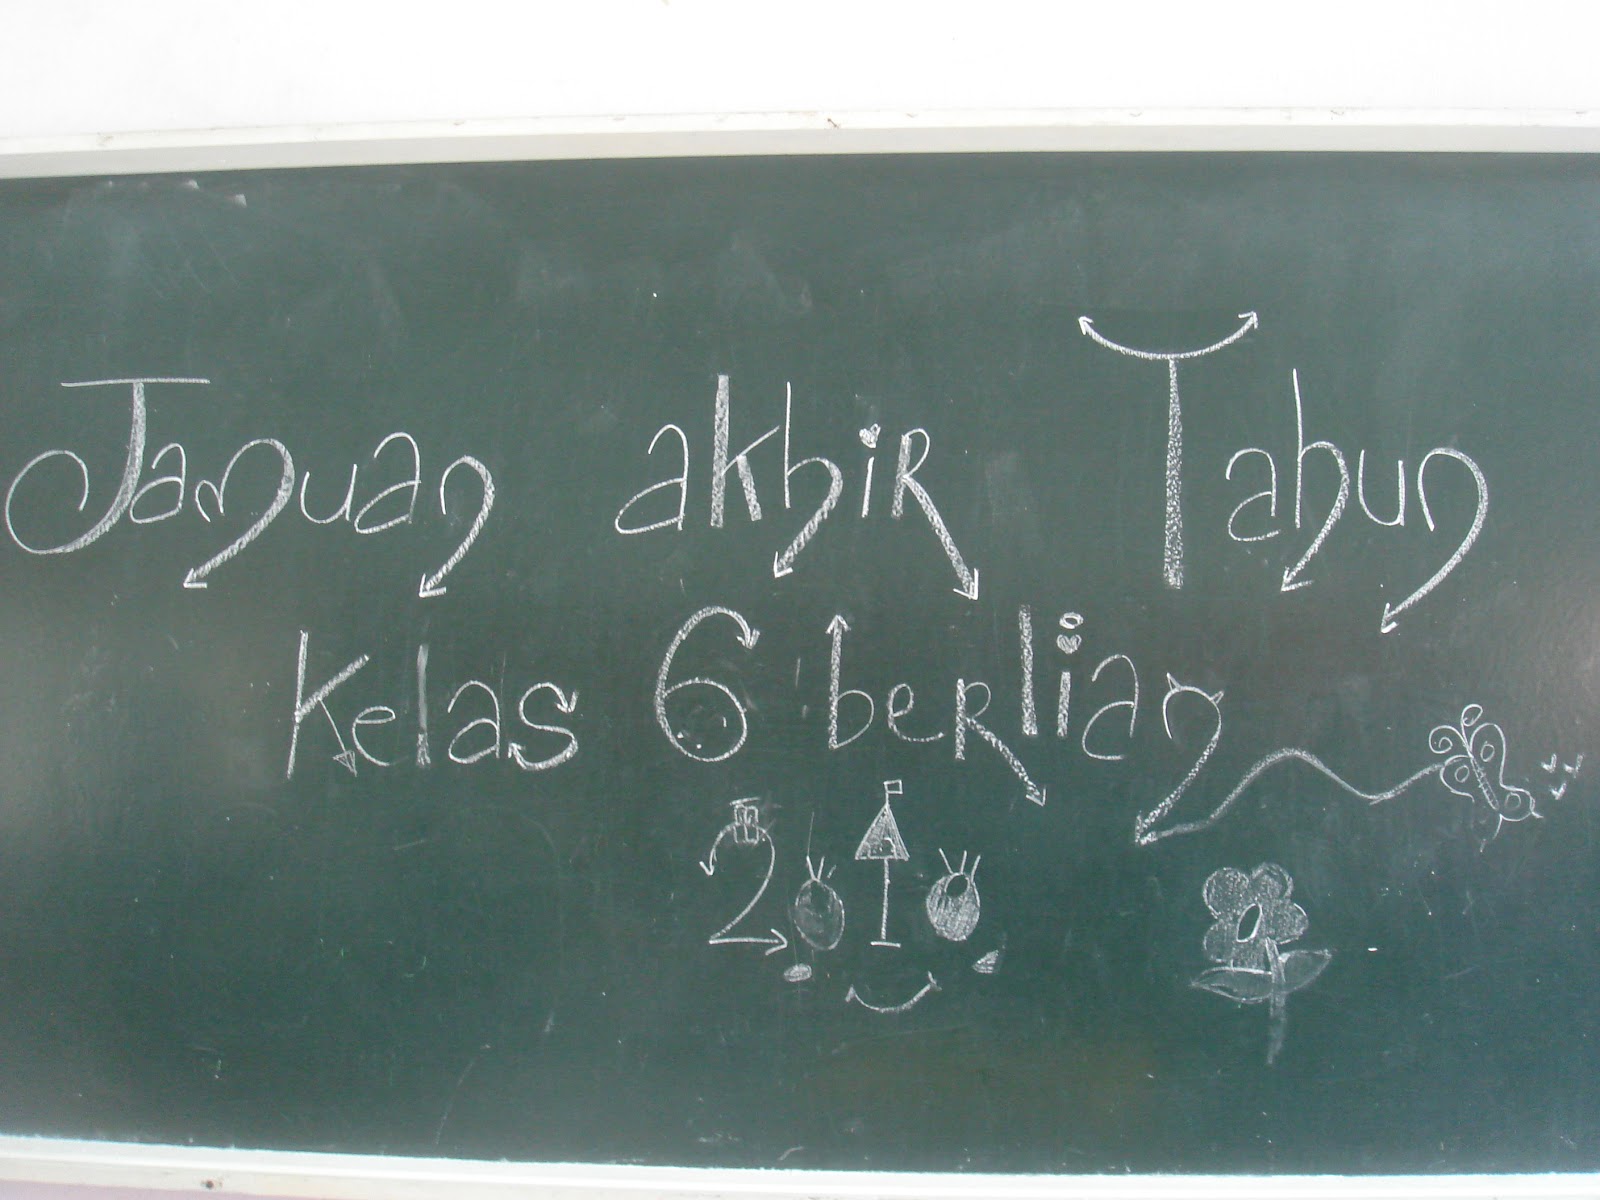 Jamuan akhiR Tahun
Kelas 6 beRlian
2010